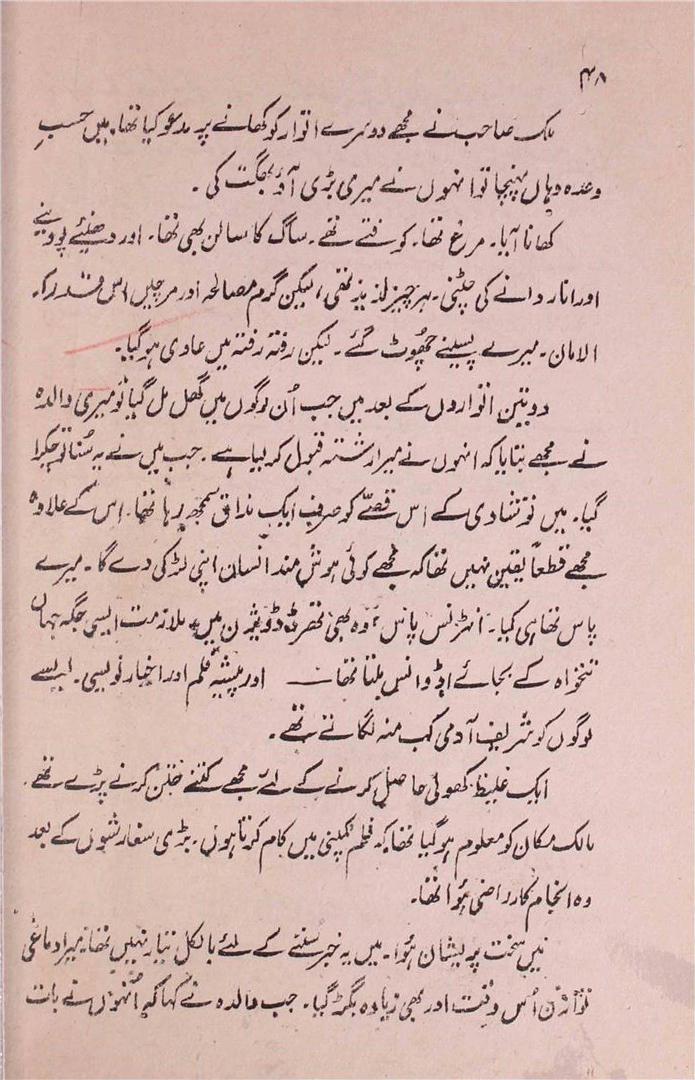 ۴۸
ملک صاحب نے مجھے دوسرے اتوار کو کھانے پر مدعو کیا تھا، میں حسبِ
وعدہ وہاں پہنچا تو انہوں نے میری بڑی آؤ بھگت کی ۔
کھانا آیا۔ مرغ تھا۔ کوفتے تھے۔ ساگ کا سالن بھی تھا۔ اور دھنیئے پودینے
اور انار دانے کی چٹنی۔ ہر چیز لذیذ تھی، لیکن گرم مصالحہ اور مرچیں اس قدر کہ
الامان۔ میرے پسینے چھُوٹ گئے۔ لیکن رفتہ رفتہ میں عادی ہو گیا۔
دو تین اتواروں کے بعد میں جب اُن لوگوں میں گھل مل گیا تو میری والدہ
نے مجھے بتایا کہ انہوں نے میرا رشتہ قبول کر لیا ہے۔ جب میں نے یہ سُنا تو چکرا
گیا۔ میں تو شادی کے اس قصّے کو صرف ایک مذاق سمجھ رہا تھا۔ اِس کے علاوہ
مجھے قطعاً یقین نہیں تھا کہ مجھے کوئی ہوش مند انسان اپنی لڑکی دے گا۔ میرے
پاس تھا ہی کیا۔ انٹرنس پاس، وہ بھی تھرڈ ڈویژن میں، ملازمت ایسی جگہ جہاں
تنخواہ کے بجائے اڈوانس ملتا تھا — اور پیشہ فلم اور اخبار نویسی۔ ایسے
لوگوں کو شریف آدمی کب منہ لگاتے تھے۔
ایک غلیظ کھولی حاصل کرنے کے لئے مجھے کتنے جتن کرنے پڑے تھے۔
مالک مکان کو معلوم ہو گیا تھا کہ فلم کمپنی میں کام کرتا ہوں۔ بڑی سفارشوں کے بعد
وہ انجام کار راضی ہُوا تھا۔
میں سخت پریشان ہُوا۔ میں یہ خبر سُننے کے لئے بالکل تیار نہیں تھا۔ میرا دماغی
توازن اُس وقت اور بھی زیادہ بگڑ گیا۔ جب والدہ نے کہا کہ اُنہوں نے بات